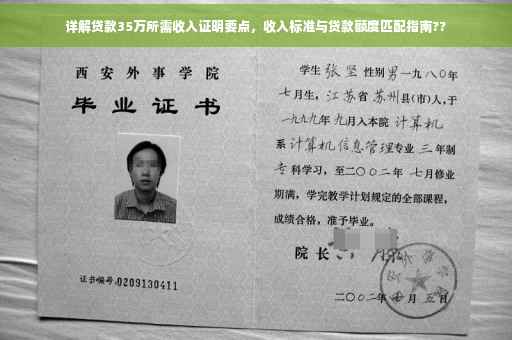 详解贷款35万所需收入证明要点，收入标准与贷款额度匹配指南??
西安外事学院
毕业证书
证书编号:0209130411
学生 张坚 性别 男 一九八〇年
七月生，江苏省 苏州县(市)人,于
一九九九年 九月入本院 计算机
系 计算机信息管理专业 三 年制
专 科学习，至二〇〇二年 七月修业
期满，学完教学计划规定的全部课程，
成绩合格，准予毕业。
院 长
二〇〇二年 七月 五日